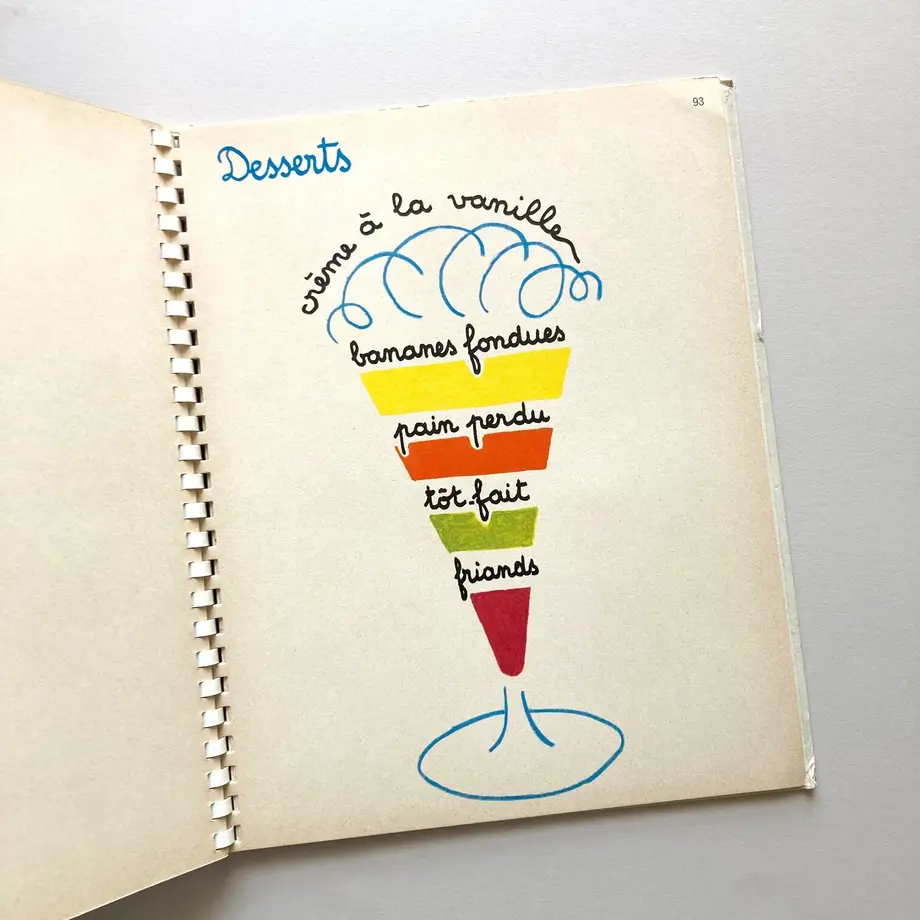 93
Desserts
crème à la vanille
bananes fondues
pain perdu
tôt-fait
friands